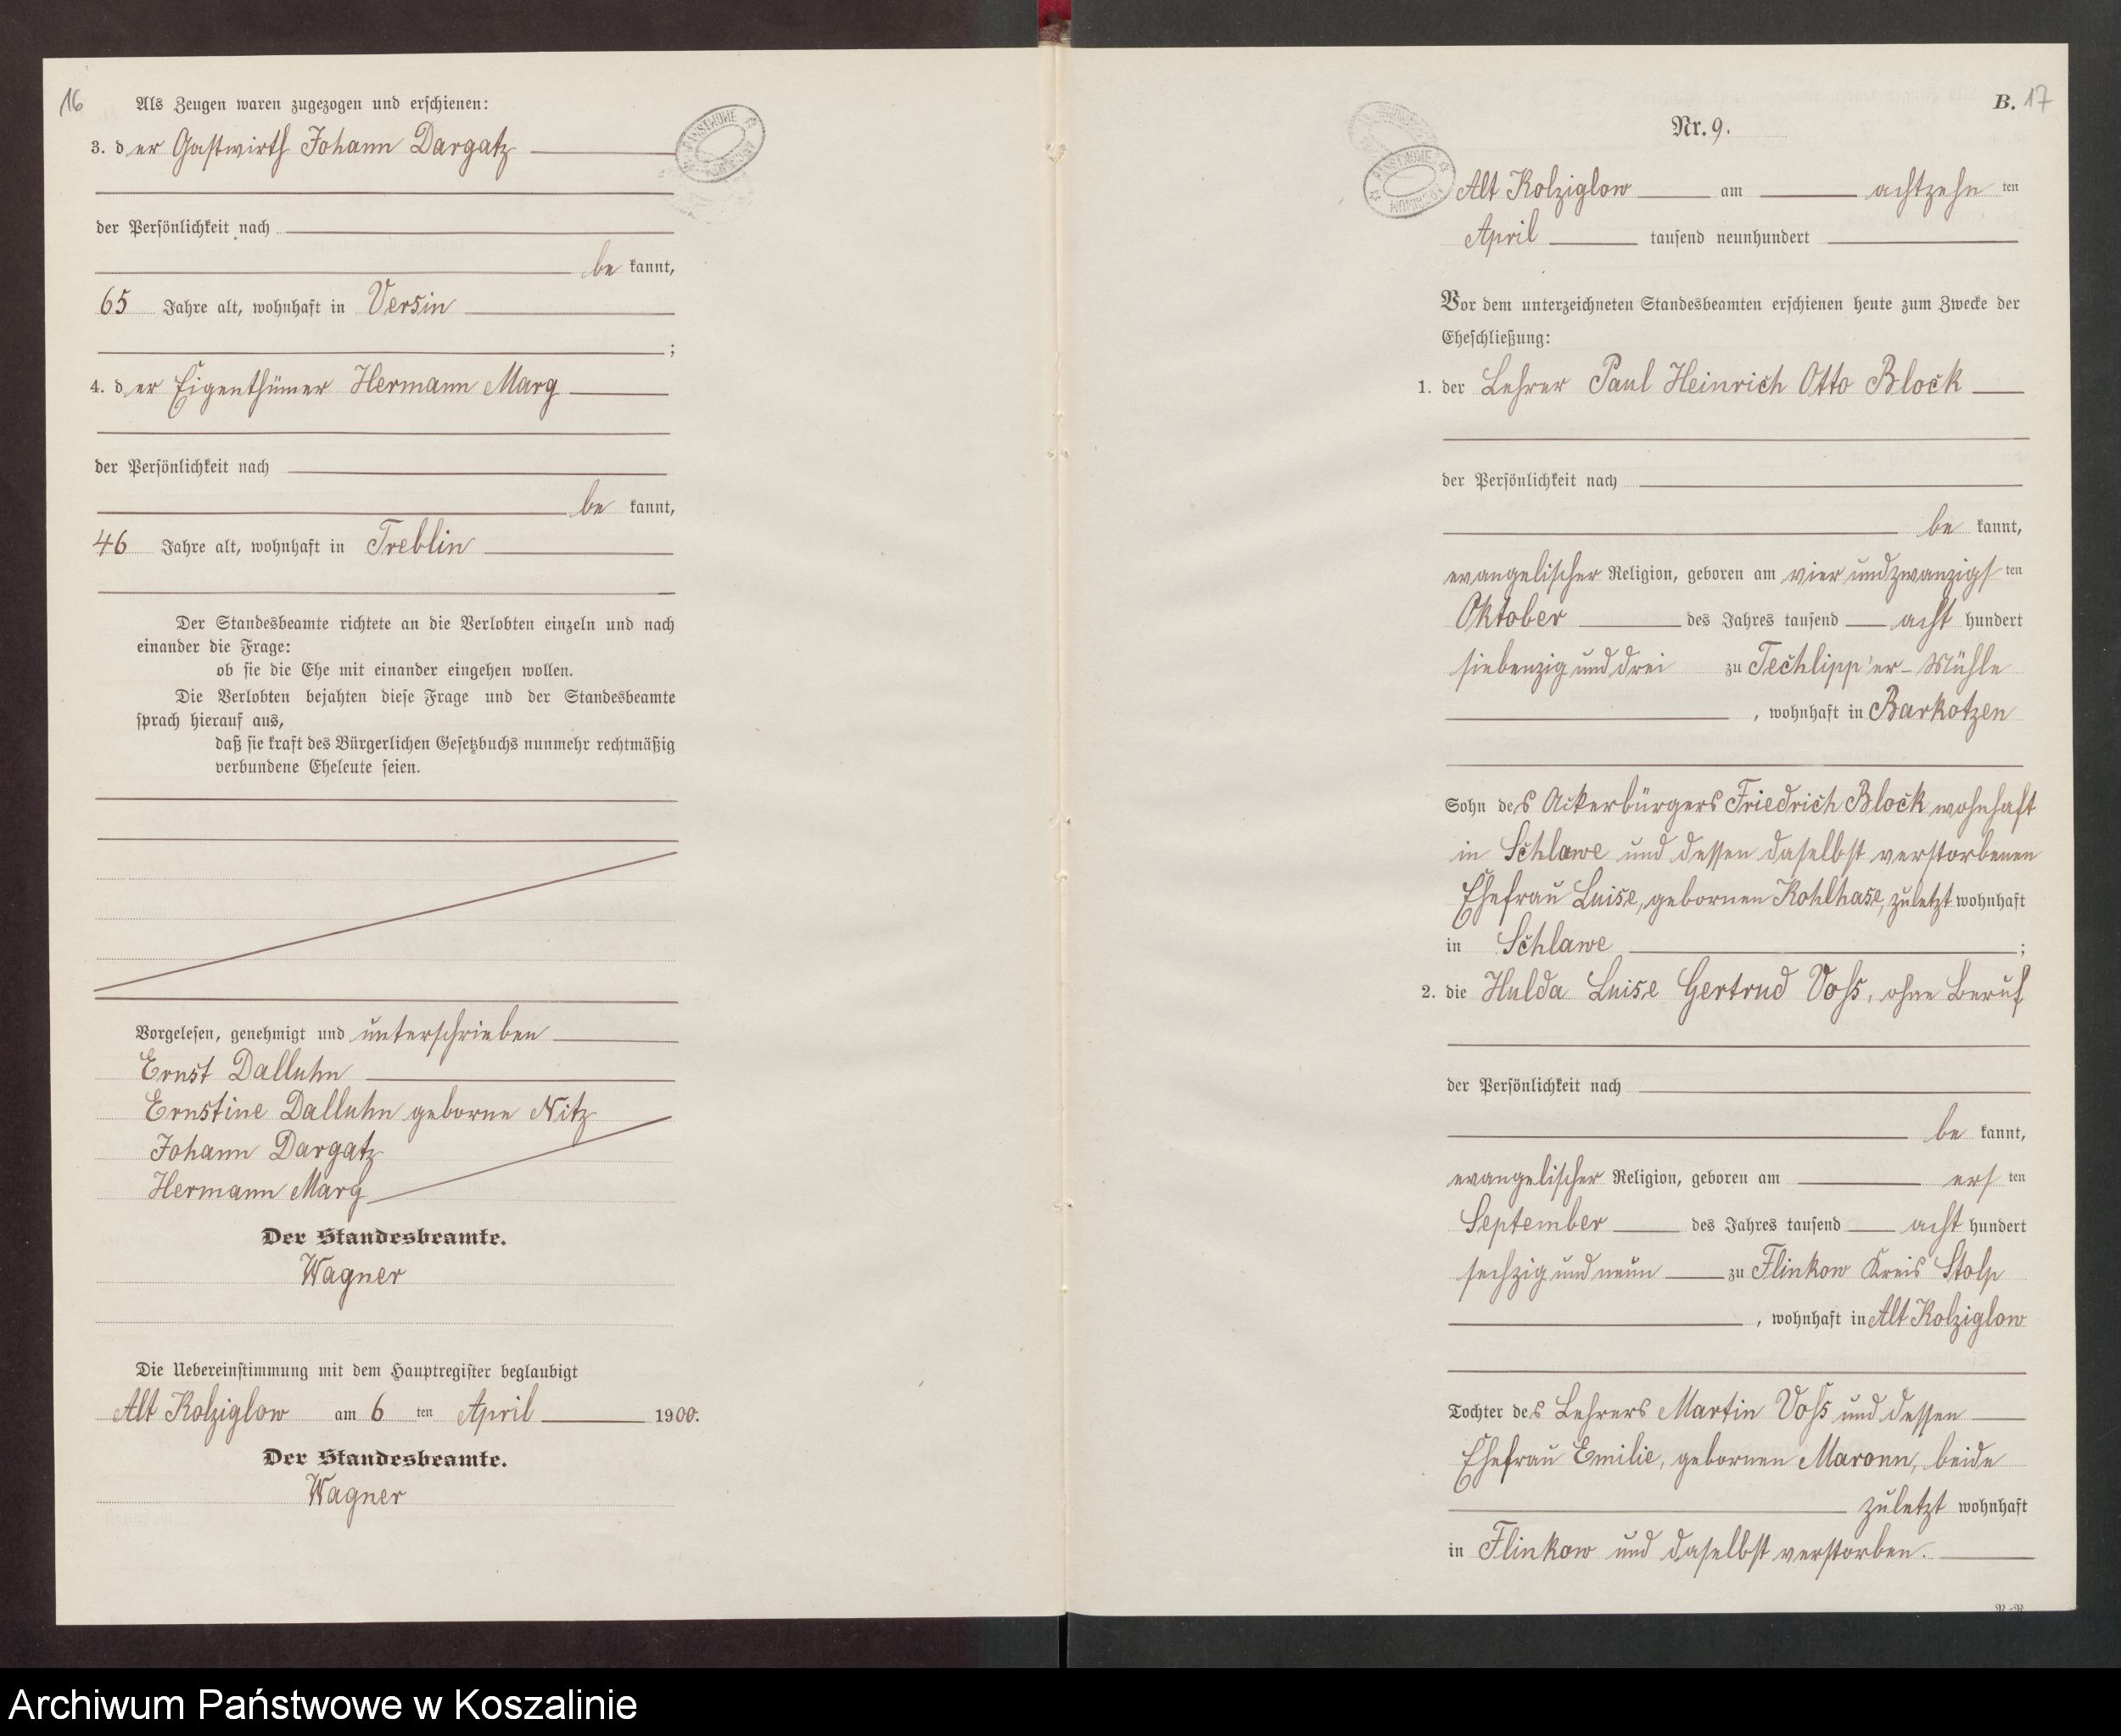 16
Als Zeugen waren zugezogen und erschienen:
3. der Gastwirth Johann Dargatz
der Persönlichkeit nach
be kannt,
65 Jahre alt, wohnhaft in Versin
;
4. der Eigenthümer Hermann Marg
der Persönlichkeit nach
be kannt,
46 Jahre alt, wohnhaft in Treblin
Der Standesbeamte richtete an die Verlobten einzeln und nach
einander die Frage:
ob sie die Ehe mit einander eingehen wollen.
Die Verlobten bejahten diese Frage und der Standesbeamte
sprach hierauf aus,
daß sie kraft des Bürgerlichen Gesetzbuchs nunmehr rechtmäßig
verbundene Eheleute seien.
Vorgelesen, genehmigt und unterschrieben
Ernst Dalluhn
Ernstine Dalluhn geborne Nitz
Johann Dargatz
Hermann Marg
Der Standesbeamte.
Wagner
Die Uebereinstimmung mit dem Hauptregister beglaubigt
Alt Kolziglow am 6 ten April 1900.
Der Standesbeamte.
Wagner
B. 17
Nr. 9.
Alt Kolziglow am achtzehn ten
April tausend neunhundert
Vor dem unterzeichneten Standesbeamten erschienen heute zum Zwecke der
Eheschließung:
1. der Lehrer Paul Heinrich Otto Block
der Persönlichkeit nach
be kannt,
evangelischer Religion, geboren am vier und zwanzigs ten
Oktober des Jahres tausend acht hundert
siebenzig und drei zu Techlipp'er-Mühle
, wohnhaft in Barkotzen
Sohn des Ackerbürgers Friedrich Block wohnhaft
in Schlawe und dessen daselbst verstorbenen
Ehefrau Luise, gebornen Kohlhase, zuletzt wohnhaft
in Schlawe ;
2. die Hulda Luise Gertrud Voß, ohne Beruf
der Persönlichkeit nach
be kannt,
evangelischer Religion, geboren am ers ten
September des Jahres tausend acht hundert
sechzig und neun zu Flinkow Kreis Stolp
, wohnhaft in Alt Kolziglow
Tochter des Lehrers Martin Voß und dessen
Ehefrau Emilie, gebornen Maronn, beide
zuletzt wohnhaft
in Flinkow und daselbst verstorben.
Archiwum Państwowe w Koszalinie